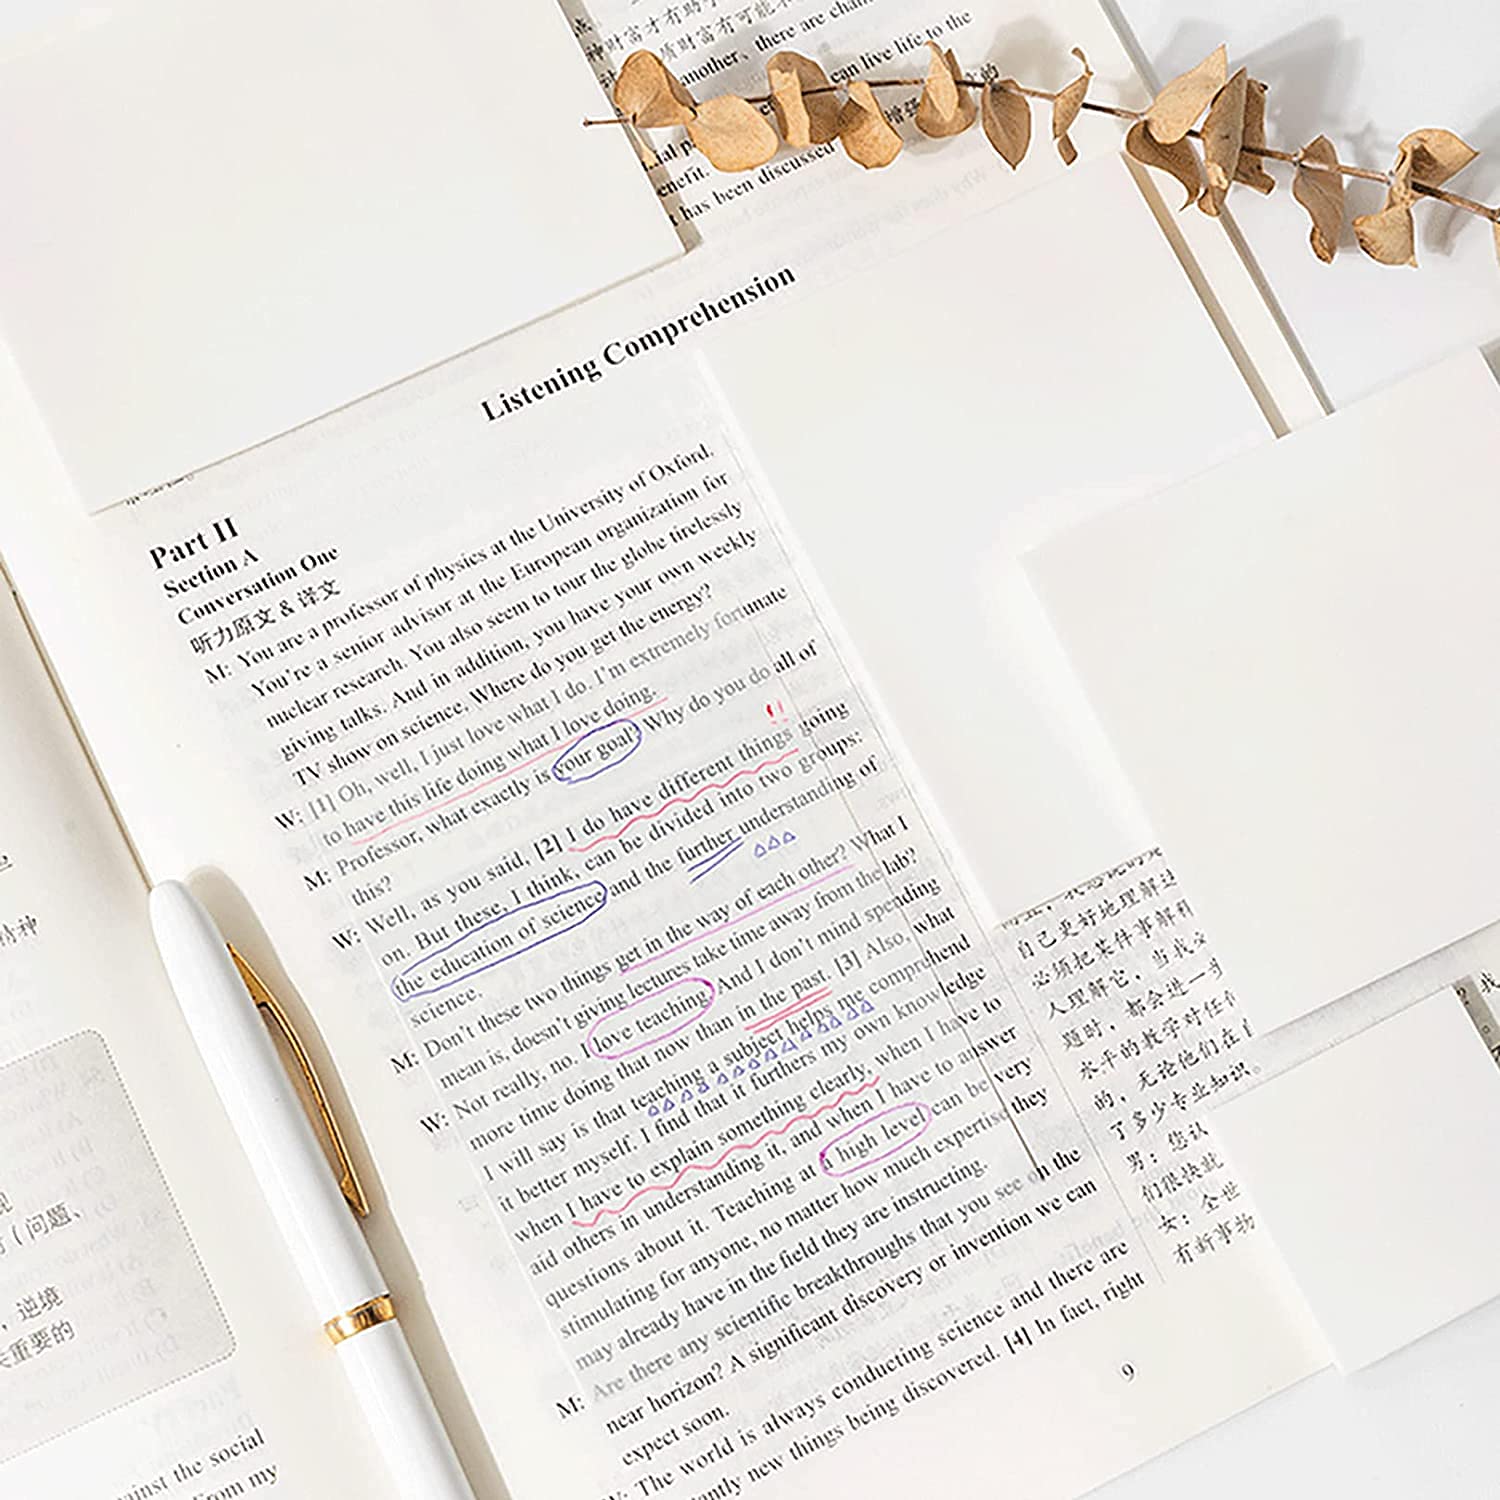 another, there are
can live life to the
enefit.
has been discussed
Listening Comprehension
Part II
Section A
Conversation One
听力原文 & 译文
M: You are a professor of physics at the University of Oxford.
You're a senior advisor at the European organization for
nuclear research. You also seem to tour the globe tirelessly
giving talks. And in addition, you have your own weekly
TV show on science. Where do you get the energy?
W: [1] Oh, well, I just love what I do. I'm extremely fortunate
to have this life doing what I love doing.
M: Professor, what exactly is your goal? Why do you do all of
this?
W: Well, as you said, [2] I do have different things going
on. But these, I think, can be divided into two groups:
the education of science and the further understanding of
science.
M: Don't these two things get in the way of each other? What I
mean is, doesn't giving lectures take time away from the lab?
W: Not really, no. I love teaching. And I don't mind spending
more time doing that now than in the past. [3] Also, what
I will say is that teaching a subject helps me comprehend
it better myself. I find that it furthers my own knowledge
when I have to explain something clearly, when I have to
aid others in understanding it, and when I have to answer
questions about it. Teaching at a high level can be very
stimulating for anyone, no matter how much expertise they
may already have in the field they are instructing.
M: Are there any scientific breakthroughs that you see on the
near horizon? A significant discovery or invention we can
expect soon.
W: The world is always conducting science and there are
tantly new things being discovered. [4] In fact, right
9
自己更好地理解这
必须把某件事解释
人理解它，当我必
题时，都会进一步
水平的教学对任何
的，无论他们在
了多少专业知识。
男：您认
们很快就
女：全世
有新事物
精神
（问题、
，逆境
重要的
ainst the social
From my